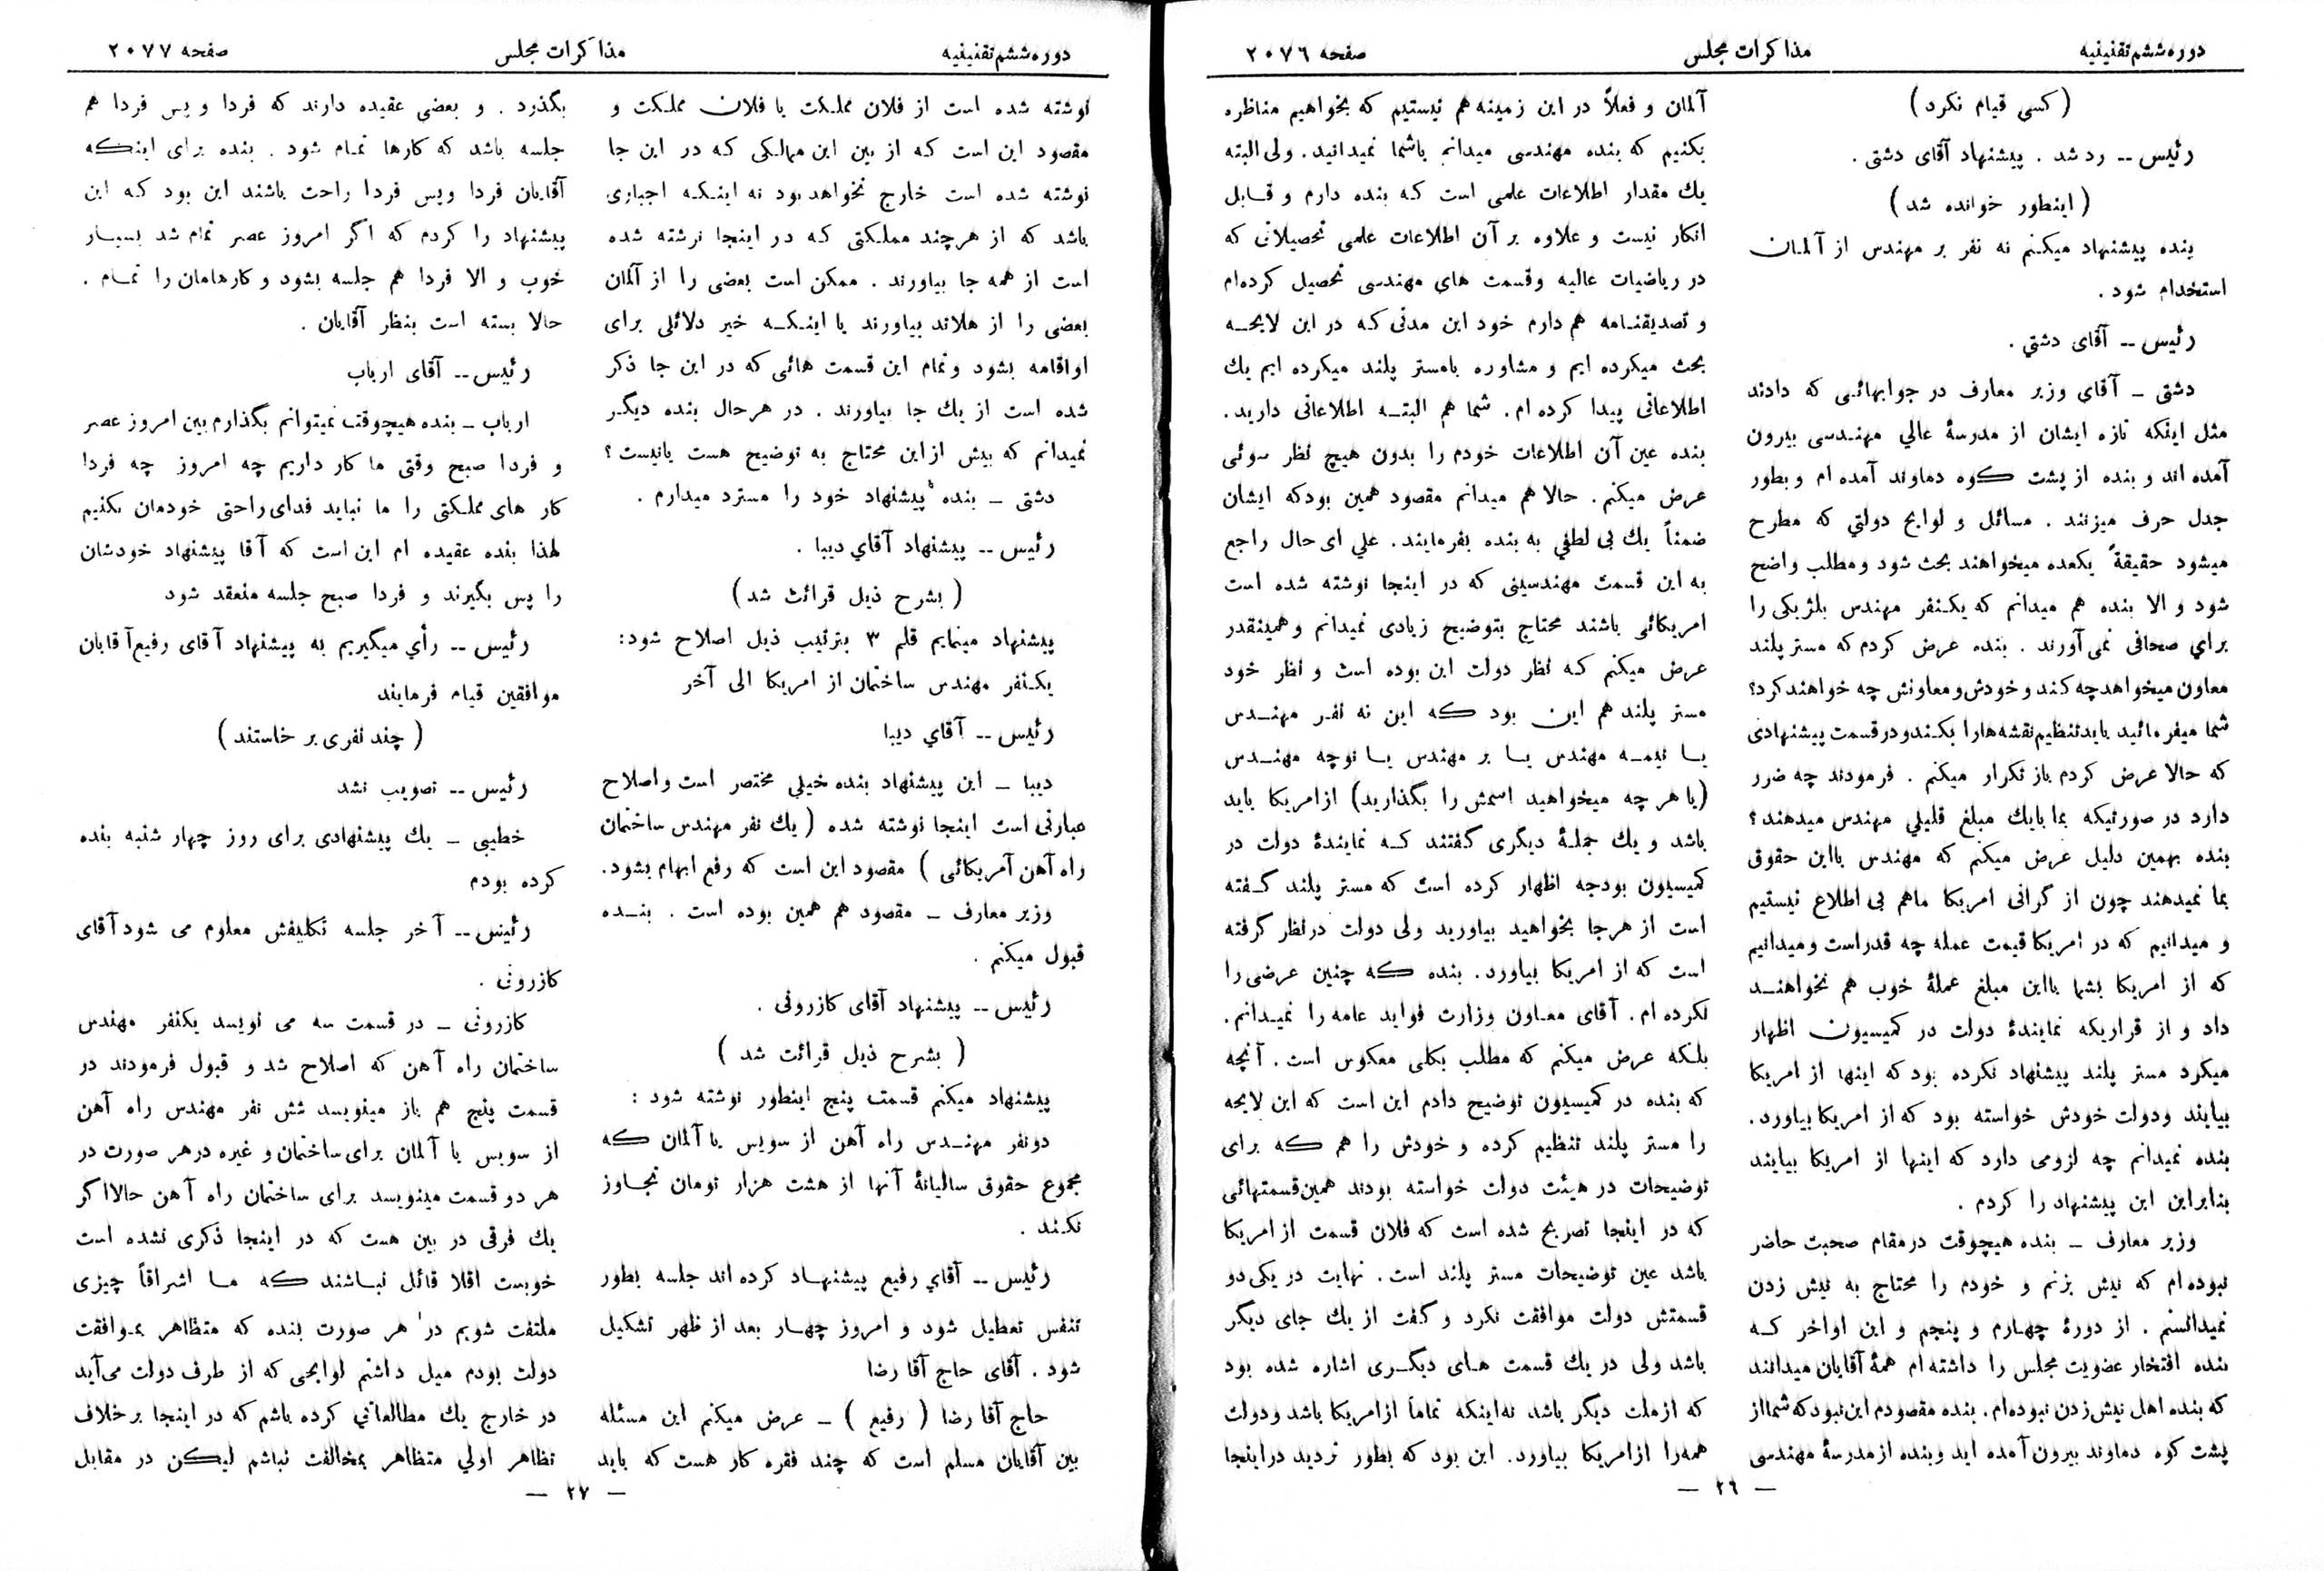 دوره ششم تقنینیه
مذاکرات مجلس
صفحه ۲۰۷۶
(کسی قیام نکرد)
رئیس -- رد شد . پیشنهاد آقای دشتی .
(اینطور خوانده شد)
بنده پیشنهاد میکنم نه نفر بر مهندس از آلمان
استخدام شود .
رئیس -- آقای دشتي .
دشتی - آقای وزیر معارف در جوابهائی که دادند
مثل اینکه تازه ایشان از مدرسهٔ عالي مهندسی بیرون
آمده اند و بنده از پشت کوه دماوند آمده ام و بطور
جدل حرف میزنند . مسائل و لوایح دولتي که مطرح
میشود حقیقةً یکعده میخواهند بحث شود و مطلب واضح
شود و الا بنده هم میدانم که یکنفر مهندس بلژیکی را
براي صحافی نمی آورند . بنده عرض کردم که مستر پلند
معاون میخواهد چه کند و خودش و معاونش چه خواهند کرد؟
شما میفرمائید باید تنظیم نقشه ها را بکند و در قسمت پیشنهادی
که حالا عرض کردم باز تکرار میکنم . فرمودند چه ضرر
دارد در صورتیکه بما بایك مبلغ قلیلي مهندس میدهند ؟
بنده بهمین دلیل عرض میکنم که مهندس بااین حقوق
بما نمیدهند چون از گرانی امریکا ماهم بی اطلاع نیستیم
و میدانیم که در امریکا قیمت عمله چه قدراست و میدانیم
که از امریکا بشما بااین مبلغ عملهٔ خوب هم نخواهند
داد و از قراریکه نمایندهٔ دولت در کمیسیون اظهار
میکرد مستر پلند پیشنهاد نکرده بود که اینها از امریکا
بیایند و دولت خودش خواسته بود که از امریکا بیاورد .
بنده نمیدانم چه لزومی دارد که اینها از امریکا بیایند
بنابراین این پیشنهاد را کردم .
وزیر معارف - بنده هیچوقت در مقام صحبت حاضر
نبوده ام که نیش بزنم و خودم را محتاج به نیش زدن
نمیدانستم . از دورهٔ چهارم و پنجم و این اواخر که
بنده افتخار عضویت مجلس را داشته ام همهٔ آقایان میدانند
که بنده اهل نیش زدن نبوده ام . بنده مقصودم این نبود که شما از
پشت کوه دماوند بیرون آمده اید و بنده از مدرسهٔ مهندسی
آلمان و فعلاً در این زمینه هم نیستیم که بخواهیم مناظره
بکنیم که بنده مهندسی میدانم یاشما نمیدانید . ولی البته
یك مقدار اطلاعات علمی است که بنده دارم و قابل
انکار نیست و علاوه بر آن اطلاعات علمی تحصیلاتی که
در ریاضیات عالیه وقسمت های مهندسی تحصیل کرده ام
و تصدیقنامه هم دارم خود این مدتی که در این لایحه
بحث میکرده ایم و مشاوره بامستر پلند میکرده ایم یك
اطلاعاتی پیدا کرده ام . شما هم البته اطلاعاتی دارید .
بنده عین آن اطلاعات خودم را بدون هیچ نظر سوئی
عرض میکنم . حالا هم میدانم مقصود همین بودکه ایشان
ضمناً یك بی لطفي به بنده بفرمایند . علي ای حال راجع
به این قسمت مهندسینی که در اینجا نوشته شده است
امریکائی باشند محتاج بتوضیح زیادی نمیدانم و همینقدر
عرض میکنم که نظر دولت این بوده است و نظر خود
مستر پلند هم این بود که این نه نفر مهندس
یا نیمه مهندس یا بر مهندس یا نوچه مهندس
(یا هر چه میخواهید اسمش را بگذارید) ازامریکا باید
باشد و یك جملهٔ دیگری گفتند که نمایندهٔ دولت در
کمیسیون بودجه اظهار کرده است که مستر پلند گفته
است از هرجا بخواهید بیاورید ولی دولت درنظر گرفته
است که از امریکا بیاورد . بنده که چنین عرضی را
نکرده ام . آقای معاون وزارت فواید عامه را نمیدانم .
بلکه عرض میکنم که مطلب بکلی معکوس است . آنچه
که بنده در کمیسیون توضیح دادم این است که این لایحه
را مستر پلند تنظیم کرده و خودش را هم که برای
توضیحات در هیئت دولت خواسته بودند همین قسمتهائی
که در اینجا تصریح شده است که فلان قسمت از امریکا
باشد عین توضیحات مستر پلند است . نهایت در یکی دو
قسمتش دولت موافقت نکرد و گفت از یك جای دیگر
باشد ولی در یك قسمت های دیگری اشاره شده بود
که ازملت دیگر باشد نه اینکه تماماً ازامریکا باشد ودولت
همه را ازامریکا بیاورد . این بود که بطور تردید دراینجا
— ۲٦ —
دوره ششم تقنینیه
مذاکرات مجلس
صفحه ۲۰۷۷
نوشته شده است از فلان مملکت یا فلان مملکت و
مقصود این است که از بین این ممالکی که در این جا
نوشته شده است خارج نخواهد بود نه اینکه اجباری
باشد که از هرچند مملکتی که در اینجا نوشته شده
است از همه جا بیاورند . ممکن است بعضی را از آلمان
بعضی را از هلاند بیاورند یا اینکه خیر دلائلی برای
او اقامه بشود و تمام این قسمت هائی که در این جا ذکر
شده است از یك جا بیاورند . در هرحال بنده دیگر
نمیدانم که بیش ازاین محتاج به توضیح هست یانیست ؟
دشتی - بنده پیشنهاد خود را مسترد میدارم .
رئیس -- پیشنهاد آقاي دیبا .
( بشرح ذیل قرائت شد )
پیشنهاد مینمایم قلم ۳ بترتیب ذیل اصلاح شود:
یکنفر مهندس ساختمان از امریکا الی آخر
رئیس -- آقاي دیبا
دیبا - این پیشنهاد بنده خیلي مختصر است واصلاح
عبارتی است اینجا نوشته شده (یك نفر مهندس ساختمان
راه آهن آمریکائی ) مقصود این است که رفع ابهام بشود .
وزیر معارف - مقصود هم همین بوده است . بنده
قبول میکنم .
رئیس -- پیشنهاد آقای کازرونی .
( بشرح ذیل قرائت شد )
پیشنهاد میکنم قسمت پنج اینطور نوشته شود :
دونفر مهندس راه آهن از سویس یا آلمان که
مجموع حقوق سالیانهٔ آنها از هشت هزار تومان تجاوز
نکند .
رئیس -- آقاي رفیع پیشنهاد کرده اند جلسه بطور
تنفس تعطیل شود و امروز چهار بعد از ظهر تشکیل
شود . آقای حاج آقا رضا
حاج آقا رضا ( رفیع ) - عرض میکنم این مسئله
بین آقایان مسلم است که چند فقره کار هست که باید
بگذرد . و بعضی عقیده دارند که فردا و پس فردا هم
جلسه باشد که کارها تمام شود . بنده برای اینکه
آقایان فردا وپس فردا راحت باشند این بود که این
پیشنهاد را کردم که اگر امروز عصر تمام شد بسیار
خوب و الا فردا هم جلسه بشود و کارهامان را تمام .
حالا بسته است بنظر آقایان .
رئیس -- آقای ارباب
ارباب - بنده هیچوقت نمیتوانم بگذارم بین امروز عصر
و فردا صبح وقتی ما کار داریم چه امروز چه فردا
کار های مملکتی را ما نباید فدای راحتی خودمان بکنیم
لهذا بنده عقیده ام این است که آقا پیشنهاد خودشان
را پس بگیرند و فردا صبح جلسه منعقد شود
رئیس -- رأي میگیریم به پیشنهاد آقای رفیع آقایان
موافقین قیام فرمایند
( چند نفری بر خاستند )
رئیس -- تصویب نشد
خطیبی - یك پیشنهادی برای روز چهار شنبه بنده
کرده بودم
رئیس -- آخر جلسه تکلیفش معلوم می شود آقای
کازرونی .
کازرونی - در قسمت سه می نویسد یکنفر مهندس
ساختمان راه آهن که اصلاح شد و قبول فرمودند در
قسمت پنج هم باز مینویسد شش نفر مهندس راه آهن
از سویس یا آلمان برای ساختمان و غیره درهر صورت در
هر دو قسمت مینویسد برای ساختمان راه آهن حالااگر
یك فرقی در بین هست که در اینجا ذکری نشده است
خوبست اقلا قائل نباشند که ما اشراقاً چیزی
ملتفت شویم در هر صورت بنده که متظاهر بموافقت
دولت بودم میل داشتم لوایحی که از طرف دولت می آید
در خارج یك مطالعاتي کرده باشم که در اینجا برخلاف
تظاهر اولي متظاهر بمخالفت نباشم لیکن در مقابل
— ۲۷ —